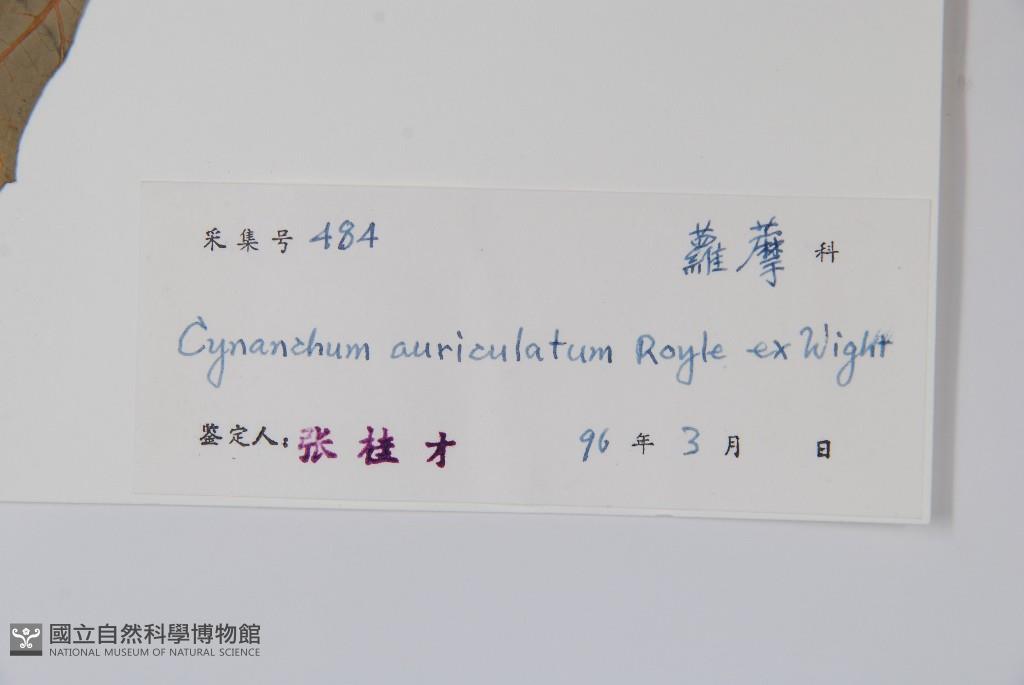 采集号 484 蘿藦 科
Cynanchum auriculatum Royle ex Wight
鉴定人: 张桂才 96 年 3 月 日
國立自然科學博物館
NATIONAL MUSEUM OF NATURAL SCIENCE